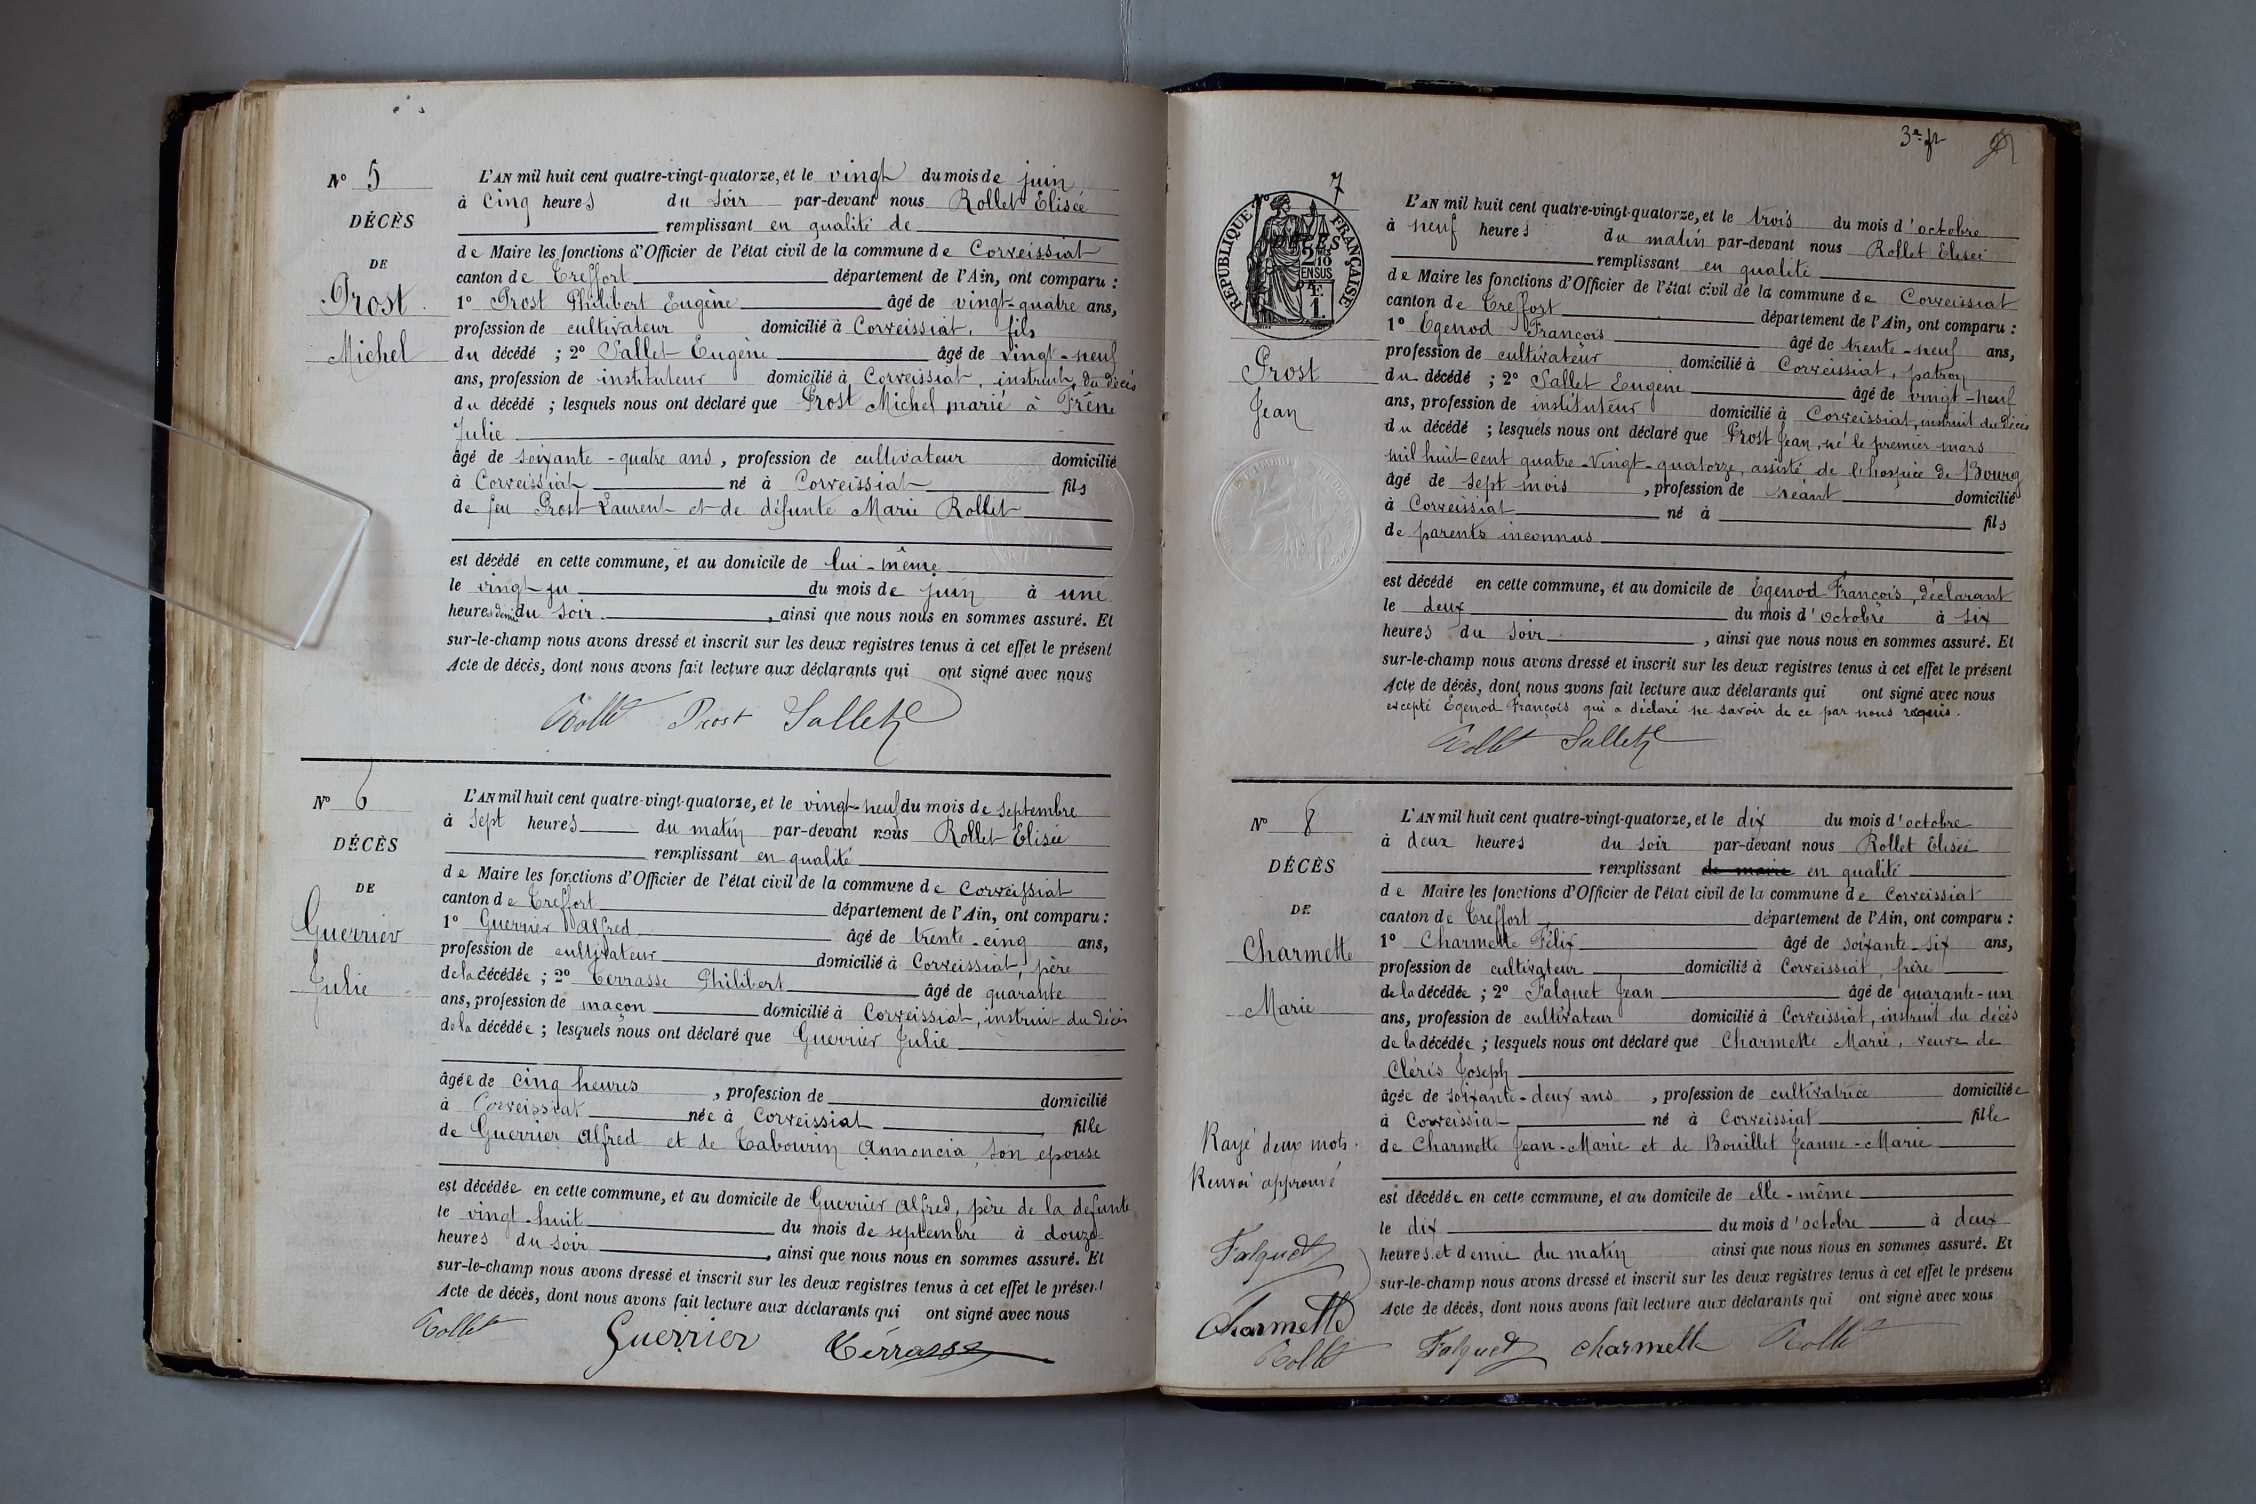 N° 5
DÉCÈS
DE
Prost
Michel
L'AN mil huit cent quatre-vingt-quatorze, et le vingt du mois de juin
à cinq heures du soir par-devant nous Rollet Elisée
remplissant en qualité de
de Maire les fonctions d'Officier de l'état civil de la commune de Corveissiat
canton de Treffort département de l'Ain, ont comparu :
1° Prost Philibert Eugène âgé de vingt-quatre ans,
profession de cultivateur domicilié à Corveissiat, fils
du décédé ; 2° Sallet Eugène âgé de vingt-neuf
ans, profession de instituteur domicilié à Corveissiat, instruit du décès
du décédé ; lesquels nous ont déclaré que Prost Michel marié à Frêne
Julie
âgé de soixante-quatre ans, profession de cultivateur domicilié
à Corveissiat né à Corveissiat fils
de feu Prost Laurent et de défunte Marie Rollet
est décédé en cette commune, et au domicile de lui-même
le vingt du mois de juin à une
heure et demie du soir, ainsi que nous nous en sommes assuré. Et
sur-le-champ nous avons dressé et inscrit sur les deux registres tenus à cet effet le présent
Acte de décès, dont nous avons fait lecture aux déclarants qui ont signé avec nous
Rollet Prost Sallet
N° 6
DÉCÈS
DE
Guerrier
Julie
L'AN mil huit cent quatre-vingt-quatorze, et le vingt-neuf du mois de septembre
à sept heures du matin par-devant nous Rollet Elisée
remplissant en qualité
de Maire les fonctions d'Officier de l'état civil de la commune de Corveissiat
canton de Treffort département de l'Ain, ont comparu :
1° Guerrier Alfred âgé de trente-cinq ans,
profession de cultivateur domicilié à Corveissiat, père
de la décédée ; 2° Terrasse Philibert âgé de quarante
ans, profession de maçon domicilié à Corveissiat, instruit du décès
de la décédée ; lesquels nous ont déclaré que Guerrier Julie
âgée de cinq heures, profession de domicilié
à Corveissiat née à Corveissiat fille
de Guerrier Alfred et de Tabourin Annoncia, son épouse
est décédée en cette commune, et au domicile de Guerrier Alfred, père de la défunte
le vingt-huit du mois de septembre à douze
heures du soir, ainsi que nous nous en sommes assuré. Et
sur-le-champ nous avons dressé et inscrit sur les deux registres tenus à cet effet le présent
Acte de décès, dont nous avons fait lecture aux déclarants qui ont signé avec nous
Rollet Guerrier Térrasse
3e fr
N° 7
RÉPUBLIQUE FRANÇAISE
DÉCÈS
2/10 EN SUS
1 F.
Prost
Jean
L'AN mil huit cent quatre-vingt-quatorze, et le trois du mois d'octobre
à neuf heures du matin par-devant nous Rollet Elisée
remplissant en qualité
de Maire les fonctions d'Officier de l'état civil de la commune de Corveissiat
canton de Treffort département de l'Ain, ont comparu :
1° Egenod François âgé de trente-neuf ans,
profession de cultivateur domicilié à Corveissiat, patron
du décédé ; 2° Sallet Eugène âgé de vingt-neuf
ans, profession de instituteur domicilié à Corveissiat, instruit du décès
du décédé ; lesquels nous ont déclaré que Prost Jean, né le premier mars
mil huit-cent quatre-vingt-quatorze, assisté de l'hospice de Bourg
âgé de sept mois, profession de néant domicilié
à Corveissiat né à fils
de parents inconnus
est décédé en cette commune, et au domicile de Egenod François, déclarant
le deux du mois d'octobre à six
heures du soir, ainsi que nous nous en sommes assuré. Et
sur-le-champ nous avons dressé et inscrit sur les deux registres tenus à cet effet le présent
Acte de décès, dont nous avons fait lecture aux déclarants qui ont signé avec nous
excepté Egenod François qui a déclaré ne savoir de ce par nous requis.
Rollet Sallet
N° 8
DÉCÈS
DE
Charmette
Marie
L'AN mil huit cent quatre-vingt-quatorze, et le dix du mois d'octobre
à deux heures du soir par-devant nous Rollet Elisée
remplissant de maire en qualité
de Maire les fonctions d'Officier de l'état civil de la commune de Corveissiat
canton de Treffort département de l'Ain, ont comparu :
1° Charmette Félix âgé de soixante-six ans,
profession de cultivateur domicilié à Corveissiat, frère
de la décédée ; 2° Falquet Jean âgé de quarante-un
ans, profession de cultivateur domicilié à Corveissiat, instruit du décès
de la décédée ; lesquels nous ont déclaré que Charmette Marie, veuve de
Cléris Joseph
âgée de soixante-deux ans, profession de cultivatrice domiciliée
à Corveissiat né à Corveissiat fille
de Charmette Jean-Marie et de Bouillet Jeanne-Marie
est décédée en cette commune, et au domicile de elle-même
le dix du mois d'octobre à deux
heures et demie du matin ainsi que nous nous en sommes assuré. Et
sur-le-champ nous avons dressé et inscrit sur les deux registres tenus à cet effet le présent
Acte de décès, dont nous avons fait lecture aux déclarants qui ont signé avec nous
Rayé deux mots.
Renvoi approuvé
Falquet
Charmette
Rollet
Falquet Charmette Rollet